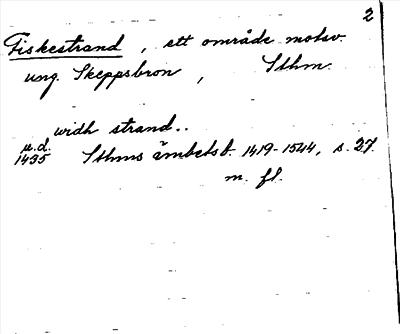 2
Fiskestrand, ett område motsv.
ung. Skeppsbron, Sthm.
widh strand..
u.d.
1435 Sthms ämbetsb. 1419-1544, s. 27.
m. fl.